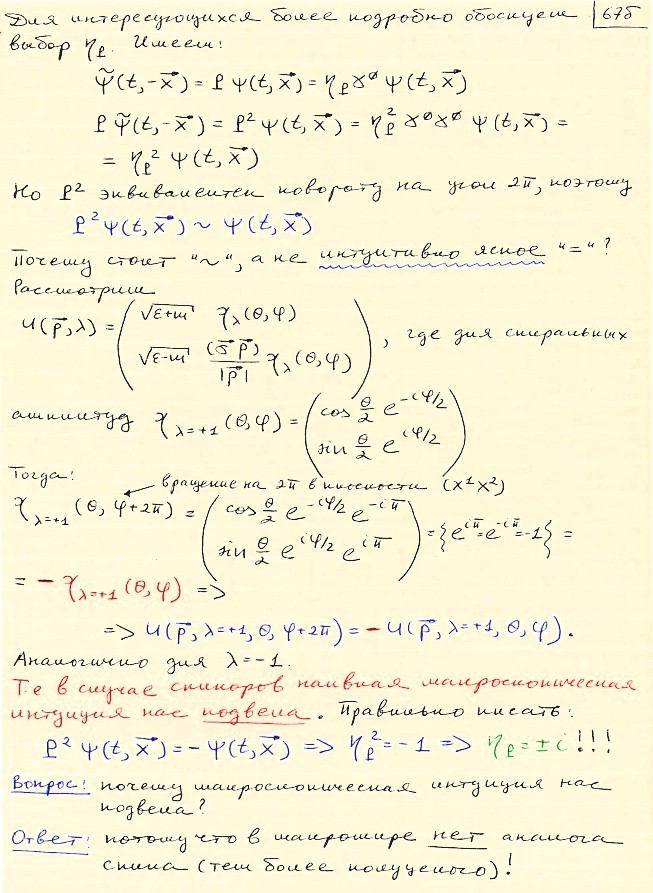 Для интересующихся более подробно обоснуем 67б
выбор η_P. Имеем:
ψ̃(t,-x⃗) = P ψ(t,x⃗) = η_P γ⁰ ψ(t,x⃗)
P ψ̃(t,-x⃗) = P² ψ(t,x⃗) = η_P² γ⁰γ⁰ ψ(t,x⃗) =
= η_P² ψ(t,x⃗)
Но P² эквивалентен повороту на угол 2π, поэтому
P² ψ(t,x⃗) ~ ψ(t,x⃗)
Почему стоит "~", а не интуитивно ясное "="?
Рассмотрим
u(p⃗,λ) = ( √(ε+m) χ_λ(θ,φ) ; √(ε-m) (σ⃗ p⃗)/|p⃗| χ_λ(θ,φ) ), где для спиральных
амплитуд χ_{λ=+1}(θ,φ) = ( cos θ/2 e^{-iφ/2} ; sin θ/2 e^{iφ/2} )
Тогда:
вращение на 2π в плоскости (x¹x²)
χ_{λ=+1}(θ, φ+2π) = ( cos θ/2 e^{-iφ/2} e^{-iπ} ; sin θ/2 e^{iφ/2} e^{iπ} ) = {e^{iπ}=e^{-iπ}=-1} =
= - χ_{λ=+1}(θ,φ) =>
=> u(p⃗, λ=+1, θ, φ+2π) = - u(p⃗, λ=+1, θ, φ).
Аналогично для λ=-1.
Т.е в случае спиноров наивная макроскопическая
интуиция нас подвела. Правильно писать:
P² ψ(t,x⃗) = -ψ(t,x⃗) => η_P² = -1 => η_P = ±i !!!
Вопрос: почему макроскопическая интуиция нас
подвела?
Ответ: потому что в макромире нет аналога
спина (тем более полуцелого)!